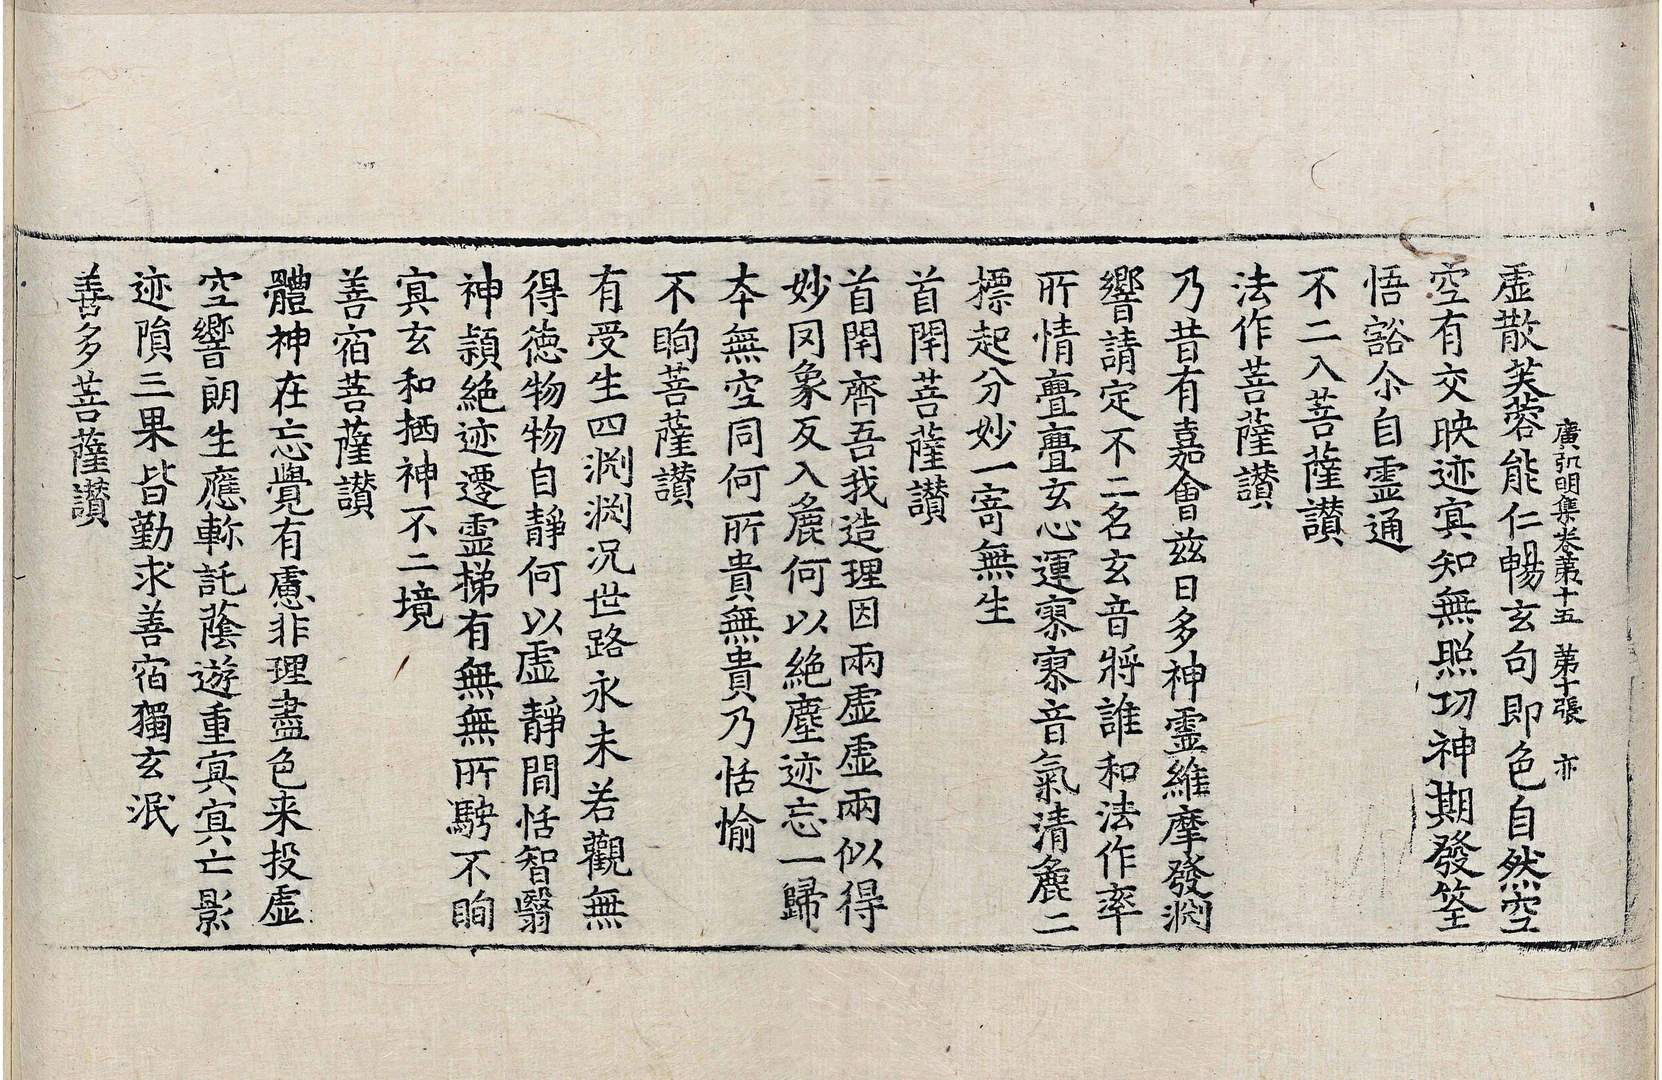 廣弘明集卷第十五 第十張 亦
虛散芙蓉能仁暢玄句即色自然空
空有交映迹冥知無照功神期發筌
悟豁尒自霊通
不二入菩薩讃
法作菩薩讃
乃昔有嘉會兹日多神霊維摩發渕
響請定不二名玄音將誰和法作率
所情亹亹玄心運寥寥音氣清麁二
摽起分妙一寄無生
首閈菩薩讃
首閈齊吾我造理因兩虛虛兩似得
妙同象反入麁何以絶塵迹忘一歸
本無空同何所貴無貴乃恬愉
不眴菩薩讃
有受生四渕渕况世路永未若觀無
得徳物物自靜何以虛靜間恬智翳
神頴絶迹遷霊梯有無無所騁不眴
冥玄和栖神不二境
善宿菩薩讃
體神在忘覺有慮非理盡色来投虛
空響朗生應軫託蔭遊重冥冥亡影
迹隕三果皆勤求善宿獨玄泯
善多菩薩讃